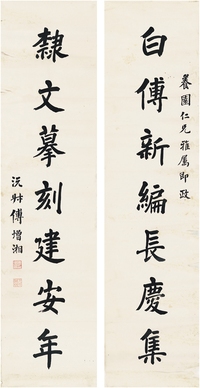 白傅新編長慶集
養園仁兄雅屬即政
隸文摹刻建安年
沅叔傅增湘